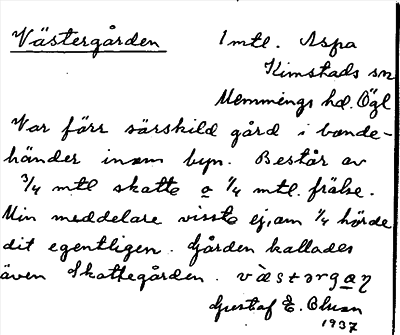 Västergården 1 mtl. Aspa
Kimstads sn
Memmings hd. Ögl
Var förr särskild gård i bonde-
händer inom byn. Består av
3/4 mtl skatte o 1/4 mtl. frälse.
Min meddelare visste ej, om 1/4 hörde
dit egentligen. Gården kallades
även Skattegården.
Gustaf E. Olsson
1937